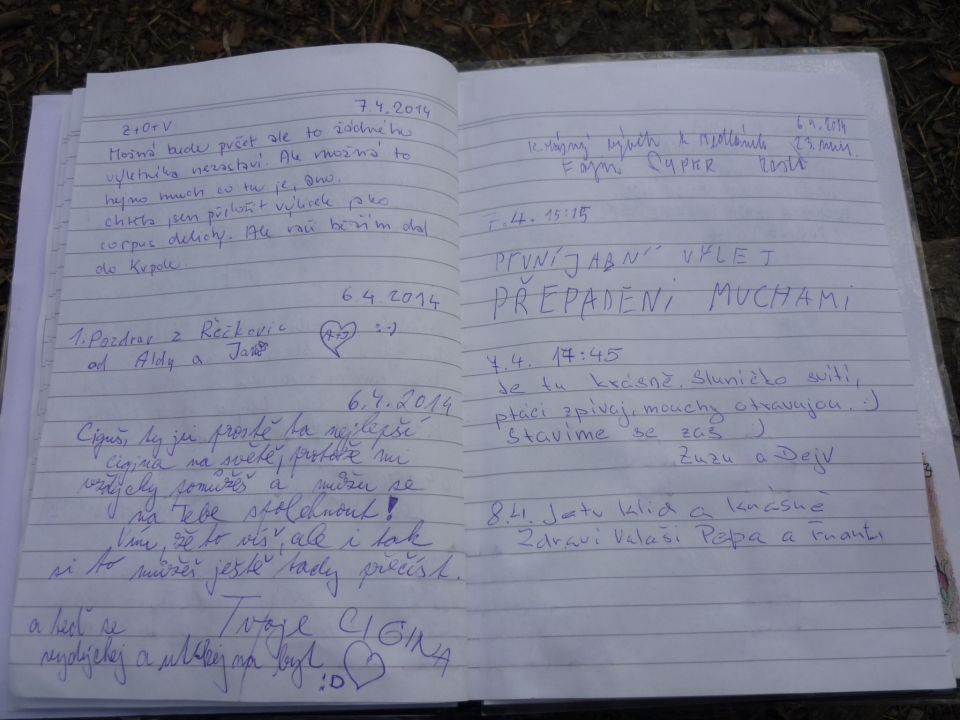 7.4.2014
Z+O+V
Možná bude pršet ale to žádného
výletníka nezastaví. Ale možná to
hejno much co tu je, ano.
chtěla jsem přiložit výlisek jako
corpus delicty. Ale radši běžím dál
do Krpole.
6 4. 2014
1. Pozdrav z Řečkovic :-)
od Aldy a
6.4.2014
Ciguš, ty jsi prostě ta nejlepší
cigina na světě, protože mi
vždycky pomůžeš a můžu se
na Tebe spolehnout!
Vím, že to víš, ale i tak
si to můžeš ještě tady přečíst.
Tvoje CIGINA
a teď se
vydýchej a utíkej na byt
:D
6.4.2014
k
7.4. 15:15
PRVNÍ JARNÍ VÝLET
PŘEPADENI MUCHAMI
7.4. 17:45
Je tu krásně. Sluníčko svítí,
ptáci zpívaj, mouchy otravujou. :)
Stavíme se zas :)
Zuzu a Dejv
8.4. Je tu klid a krásně
Zdraví Valaši Pepa a